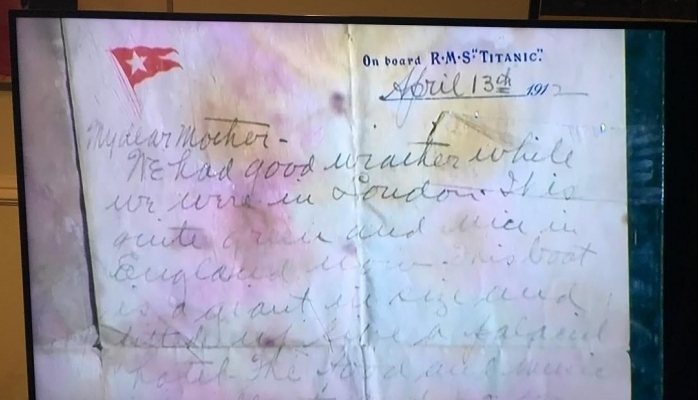 On board R·M·S "TITANIC".
April 13th 1912
My dear Mother -
We had good weather while
we were in London. It is
quite green and nice in
England now. This boat
is a giant in size and
fitted up like a palacial
hotel. The food and music